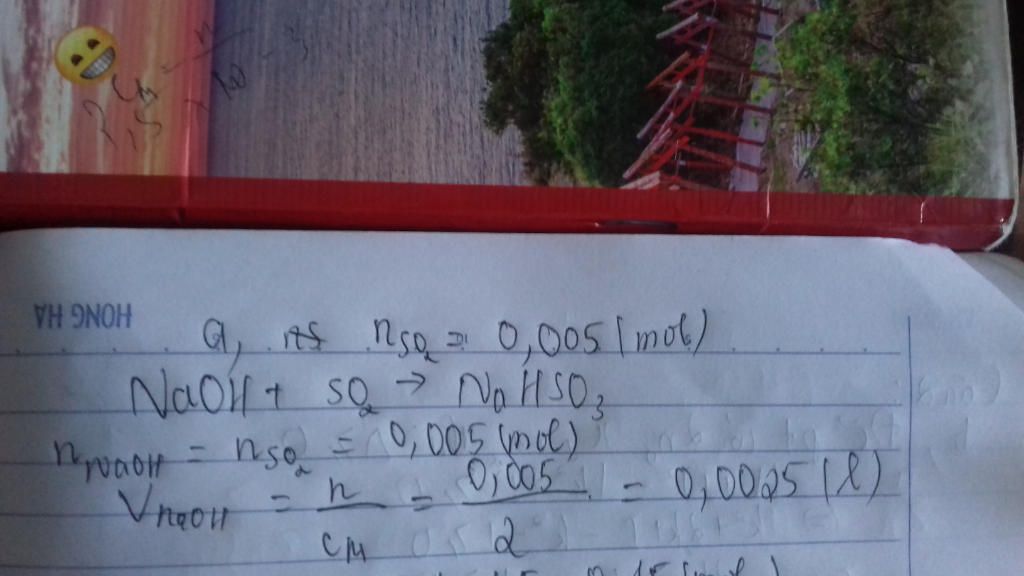 HONG HA
a, nSO2 = 0,005 (mol)
NaOH + SO2 → NaHSO3
nNaOH = nSO2 = 0,005 (mol)
VnaOH = n/CM = 0,005/2 = 0,0025 (l)